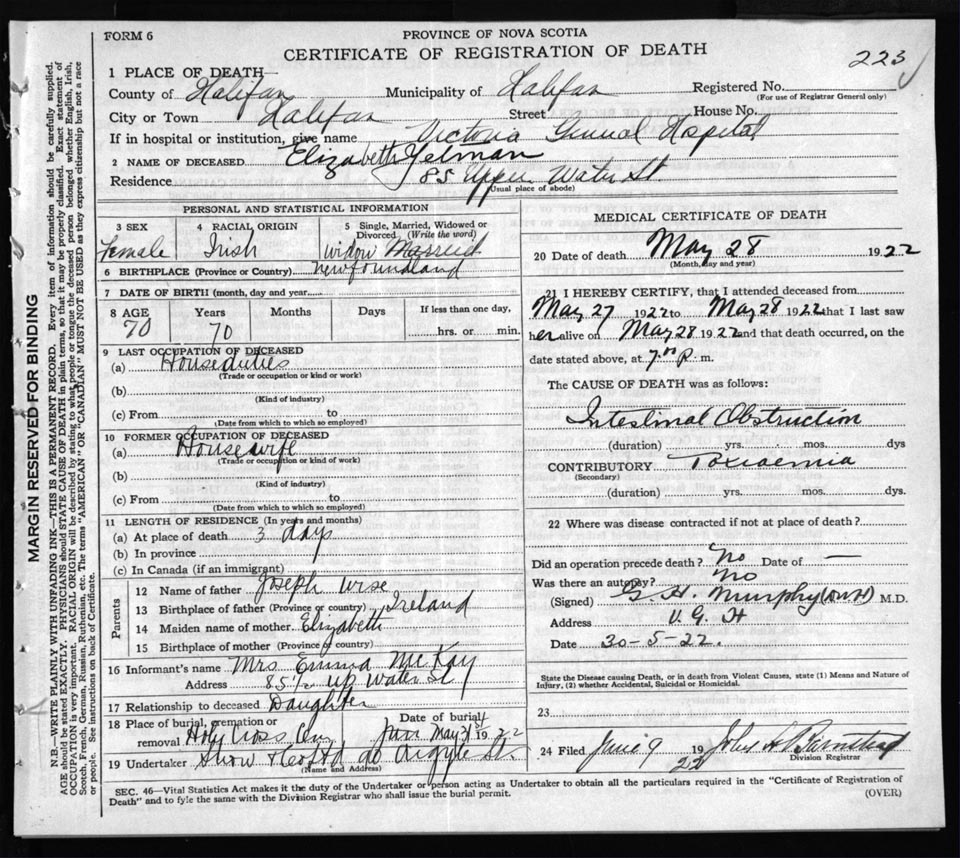 FORM 6
PROVINCE OF NOVA SCOTIA
CERTIFICATE OF REGISTRATION OF DEATH
223
1 PLACE OF DEATH
County of Halifax Municipality of Halifax Registered No.
(For use of Registrar General only)
City or Town Halifax Street House No.
If in hospital or institution, give name Victoria General Hospital
2 NAME OF DECEASED Elizabeth Yelman
Residence 85 Upper Water St
(Usual place of abode)
PERSONAL AND STATISTICAL INFORMATION
3 SEX 4 RACIAL ORIGIN 5 Single, Married, Widowed or Divorced (Write the word)
Female Irish Widow Married
6 BIRTHPLACE (Province or Country) Newfoundland
7 DATE OF BIRTH (month, day and year)
8 AGE Years Months Days If less than one day,
70 70 hrs. or min.
9 LAST OCCUPATION OF DECEASED
(a) House duties
(Trade or occupation or kind or work)
(b)
(Kind of industry)
(c) From to
(Date from which to which so employed)
10 FORMER OCCUPATION OF DECEASED
(a) Housewife
(Trade or occupation or kind of work)
(b)
(Kind of industry)
(c) From to
(Date from which to which so employed)
11 LENGTH OF RESIDENCE (In years and months)
(a) At place of death 3 days
(b) In province
(c) In Canada (if an immigrant)
Parents
12 Name of father Joseph Wise
13 Birthplace of father (Province or country) Ireland
14 Maiden name of mother Elizabeth
15 Birthplace of mother (Province or country)
16 Informant's name Mrs Emma McKay
Address 85½ Up Water St
17 Relationship to deceased Daughter
18 Place of burial, cremation or removal Holy Cross Cem Date of burial May 31st 1922
19 Undertaker Snow & Co Ltd 90 Argyle St.
(Name and Address)
MEDICAL CERTIFICATE OF DEATH
20 Date of death May 28 1922
(Month, day and year)
21 I HEREBY CERTIFY, that I attended deceased from
May 27 1922 to May 28 1922 that I last saw
her alive on May 28 1922 and that death occurred, on the
date stated above, at 7 P. m.
The CAUSE OF DEATH was as follows:
Intestinal Obstruction
(duration) yrs. mos. dys
CONTRIBUTORY Toxicaemia
(Secondary)
(duration) yrs. mos. dys.
22 Where was disease contracted if not at place of death?
Did an operation precede death? No Date of —
Was there an autopsy? No
(Signed) G. H. Murphy M.D.
Address V. G. H
Date 30-5-22.
State the Disease causing Death, or in death from Violent Causes, state (1) Means and Nature of
Injury, (2) whether Accidental, Suicidal or Homicidal.
23
24 Filed June 9 1922
Division Registrar
SEC. 46—Vital Statistics Act makes it the duty of the Undertaker or person acting as Undertaker to obtain all the particulars required in the "Certificate of Registration of
Death" and to fyle the same with the Division Registrar who shall issue the burial permit.
(OVER)
MARGIN RESERVED FOR BINDING
N.B.—WRITE PLAINLY WITH UNFADING INK—THIS IS A PERMANENT RECORD. Every item of information should be carefully supplied.
AGE should be stated EXACTLY. PHYSICIANS should STATE CAUSE OF DEATH in plain terms, so that it may be properly classified. Exact statement of
OCCUPATION is very important. RACIAL ORIGIN will be described by stating to what people or tongue the deceased person belonged whether English, Irish,
Scotch, French, German, Russian, Ruthenian, etc. The terms "AMERICAN" OR "CANADIAN" MUST NOT BE USED as they express citizenship but not a race
or people. See instructions on back of Certificate.